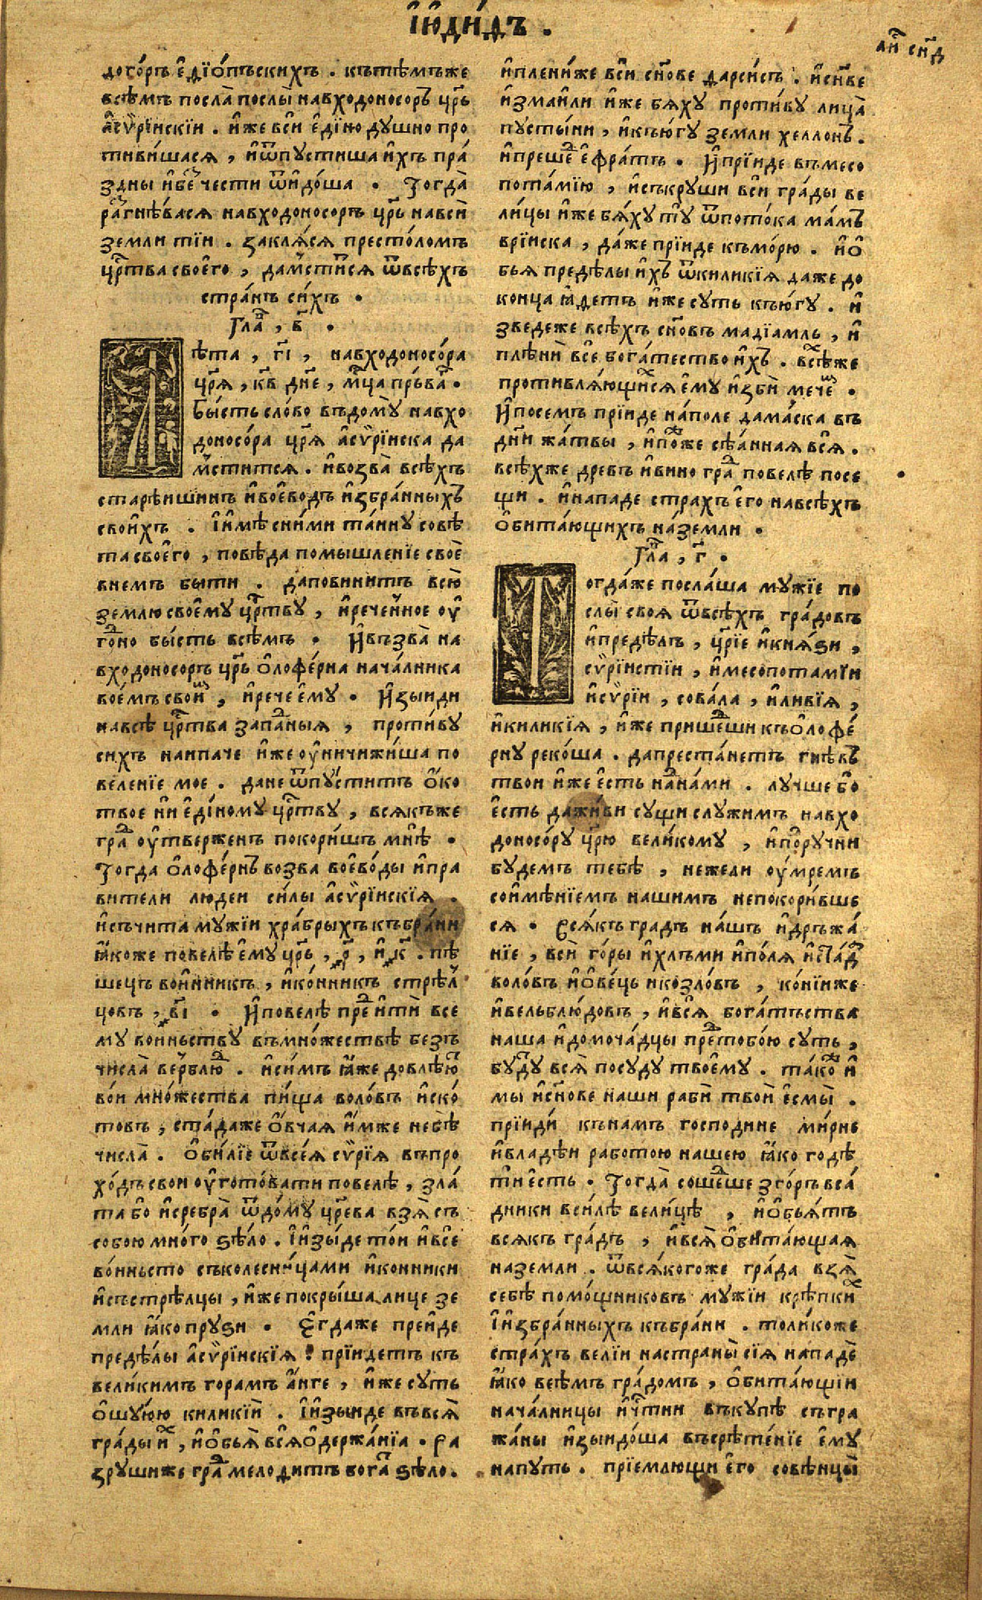 І҆ю҆ди́дъ .
догоръ е҆дїо́пъскихъ . къти́мъже
всѣмъ посла̀ послы̀ навходоносоръ цр҃ь
а҆сѷрі́искіи . и҆же всѝ е҆ді́ною душно про
тиви́шася , и҆ѿпустиша и҆хъ пра́
здны и҆бече́сти ѿи҆до́ша . Тогда̀
разгнѣ́вася навходоносоръ цр҃ь навсѝ
земли тіи . Закля́ся престо́ломъ
цр҃тва своего̀ , дамсти́тся ѿвсѣхъ
стра́нъ си́хъ .
Гла , в҃ .
Лѣта , гі҃ , навходоносо́ра
цр҃я , кв҃ дн҃е , мц҃а пръва .
Бы́сть сло́во въдому̀ навхо
доносо́ра цр҃я а҆сѷрі́иска да
мстится . и҆возва̀ всѣ́хъ
старѣ́ишинъ и҆вое́водъ и҆збра́нныхъ
свои́хъ . І҆и҆мѣ̀ сни́ми та́ину совѣ́
та своего̀ , повѣ́да помышленіе своѐ
внемъ быти . даповинитъ всю̀
землю своему цр҃тву , и҆рече́нное оу҆
го́дно бы́сть всѣмъ . И҆възва̀ на
входоносоръ цр҃ь о҆лофе́рна нача́лника
вое́мъ свои , и҆рече е҆му . И҆зыиди
навсѣ̀ цр҃тва запа́дныя , проти́ву
сихъ наипаче и҆же оу҆ничижи́ша по
веленіе мое . дане ѿпу́ститъ о҆ко
твое ни е҆ди́ному цр҃тву , всякъже
гра оу҆тверженъ покори́шъ мнѣ̀ .
Тогда о҆лофе́рнъ возва воево́ды и҆пра
вители люде́и си́лы а҆сѷрі́искія .
и҆съчита мужіи храбрыхъ къбра́ни
ꙗ҆коже повелѣ̀ е҆му цр҃ь , р҃ , и҆ к҃ . пѣ́
шецъ во́инникъ , и҆ко́нникъ стрѣл
цовъ , ві҃ . И҆повелѣ̀ пре и҆ти все
му во́инъству въмно́жествѣ безъ
числа̀ верблю . и҆симъ ꙗ҆же довлѣ́ю
вои мно́жества пи́ща воло́въ и҆ско́
товъ , ста́даже о҆вчая и҆мже небѣ̀
числа̀ . О҆би́ліе ѿвсея́ сѷрія въпро
хо́дъ свои оу҆гото́вати повелѣ̀ , зла́
та бо и҆сребра̀ ѿдо́му цр҃ева взя съ
собою мно́го ѕѣло . І҆изы́де то́и и҆все
во́инъсто съколесни́цами и҆конники
и҆състрѣ́лцы , и҆же покры́ша лице зе
мли ꙗ҆ко пруѕи . Е҆гдаже преи́де
предѣ́лы а҆сѷрі́искія : прі́идетъ къ
вели́кимъ горамъ а҆нге , и҆же суть
о҆шу́юю киликіи . І҆изыиде въвся̀
гра́ды и , и҆о҆бъя̀ вся҆ о҆держа́нія . Ра
зруши́же гра мело́дитъ бога ѕѣ́ло .
и҆плени́же вси сн҃ове дарси́съ . и҆сн҃ве
и҆змаи́ли и҆же бя́ху проти́ву лица̀
пусты́ни , и҆къю́гу земли хеллонъ .
и҆преше е҆фра́тъ . И҆прі́иде въмесо
пота́мію , и҆съкруши вси гра́ды ве
ли́цы и҆же бя́ху ту̀ ѿпото́ка ма́мъ
вріиска , да́же прі́иде къмо́рю . и҆о҆
бъя предѣ́лы и҆хъ ѿкилики́я даже до
конца ꙗ҆детъ и҆же суть къю́гу . и҆
зведеже всѣ́хъ сн҃овъ мадіамль , и҆
плѣнѝ все бога́тество и҆хъ . всѣже
противля́ющихся е҆му и҆збѝ мече .
И҆посемъ прі́иде на́поле дама́ска въ
дн҃и жа́твы , и҆пожже сѣ́анная вся̀ .
всѣ́хже древъ и҆вино гра повелѣ̀ посе
щи . и҆нападе стра́хъ е҆го навсѣ́хъ
о҆бита́ющихъ на́земли .
Гла , г҃ .
Тогда́же посла́ша му́жіе по
слы̀ своя̀ ѿвсѣ́хъ градовъ
и҆предѣ́лъ , цр҃іе и҆кня́ѕи ,
сѷрі́истіи , и҆месопота́міи
и҆сѷріи , сова́ла , и҆ливі́я ,
и҆килики́я , и҆же прише́дши къо҆лофе́
рну реко́ша . дапреста́нетъ гнѣ́въ
твои и҆же е҆сть на́нами . лучше бо
есть дажи́ви сущи слу́жимъ навхо
доносо́ру цр҃ю вели́кому , и҆пору́чни
бу́демъ тебѣ̀ , нежели оу҆мремъ
соимѣ́ніемъ нашимъ непокори́вше
ся . Всякъ градъ нашъ и҆дръжа́
ніе , всѝ го́ры и҆хлъми и҆поля̀ и҆стад
воло́въ и҆о҆ве́цъ и҆козло́въ , ко́ніиже
и҆вельблю́довъ , и҆вся̀ бога́тъства
наша и҆домоча́дцы пре тобо́ю суть ,
буду вся̀ посуду твоему . тако и҆
мы и҆сн҃ове наши рабѝ твоѝ е҆смы̀ .
прі́иди къна́мъ господи́не ми́рне
и҆владѣ́и рабо́тою нашею ꙗ҆ко годѣ̀
ти есть . Тогда̀ соше́дше згоръ вса́
дники въси́лѣ вели́цѣ , и҆о҆бъя́тъ
всякъ гра́дъ , и҆вся̀ о҆бита́ющая
наземли . ѿвся́когоже гра́да взя̀
себѣ помо́щниковъ мужіи крѣпки
І҆избра́нныхъ къбра́ни . толи́коже
стра́хъ ве́ліи настраны̀ сі́я нападѐ
ꙗ҆ко всѣмъ гра́домъ , о҆бита́ющіи
нача́лницы и҆ч҃тніи въку́пѣ съгра
жа́ны и҆зыидо́ша въсрѣ́теніе е҆му
напу́ть . прі́емлющи е҆го совѣнцы̀